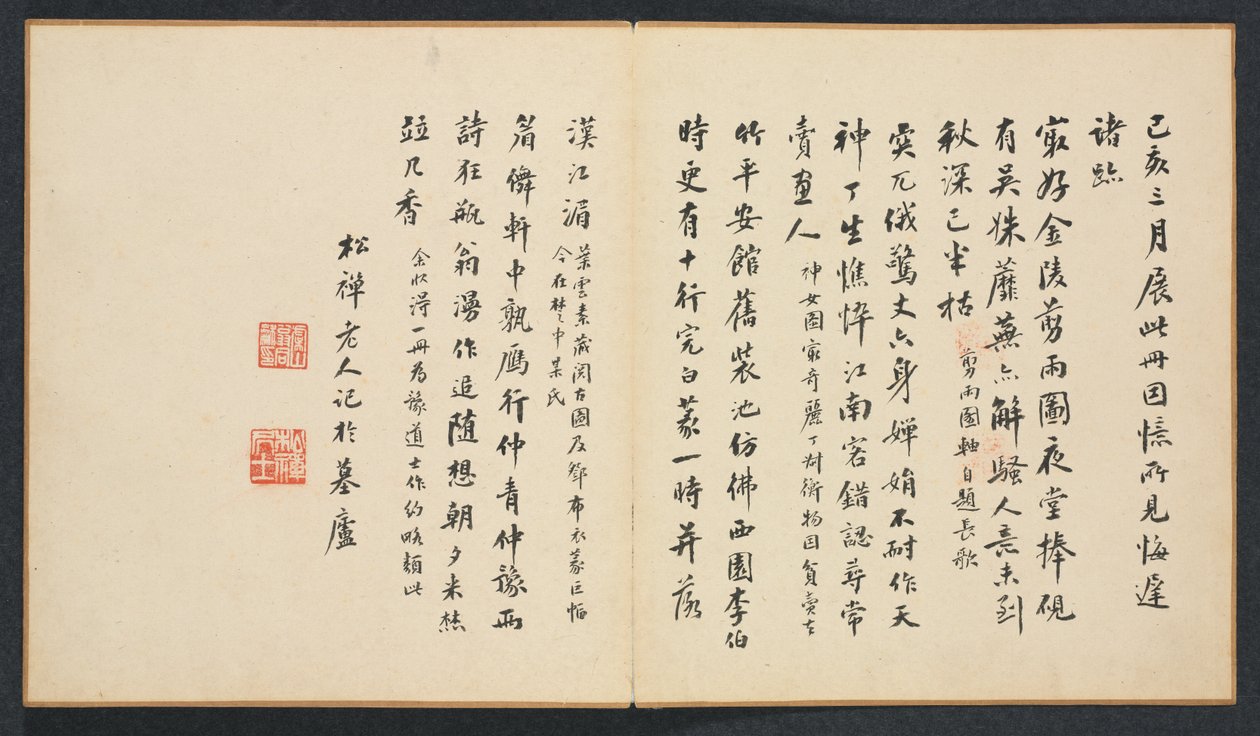 己亥三月展此冊因憶所見悔遲
諸跡
寂好金陵剪雨圖夜堂捧硯
有吳姝蘼蕪亦解騷人意未到
秋深已半枯 剪雨圖軸自題長歌
突兀俄驚丈六身嬋娟不耐作天
神丁生憔悴江南客錯認尋常
賣畫人 神女圖寂奇麗丁尉衡物因貧賣去
竹平安館舊裝池仿佛西園李伯
時更有十行完白篆一時并落
漢江湄 葉雲素藏閱古圖及鄧布衣篆巨幅
今在楚中某氏
眉僻軒中孰雁行仲青仲豫兩
詩狂瓶翁漫作追隨想朝夕米鹽
並几香 余收得一冊為豫道士作約略類此
松禪老人記於墓廬
虞山翁同龢印
松禪居士